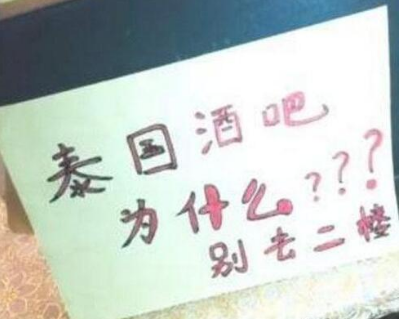 泰国酒吧
为什么???
别去二楼